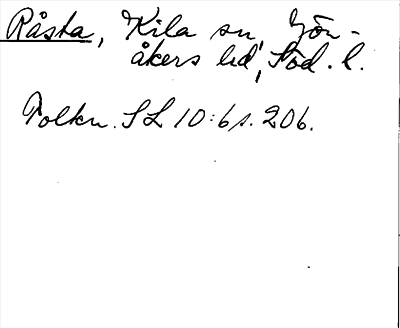 Råsta, Kila sn, Jön-
åkers hd, Söd. l.
Tolkn. SL 10:6 s. 206.